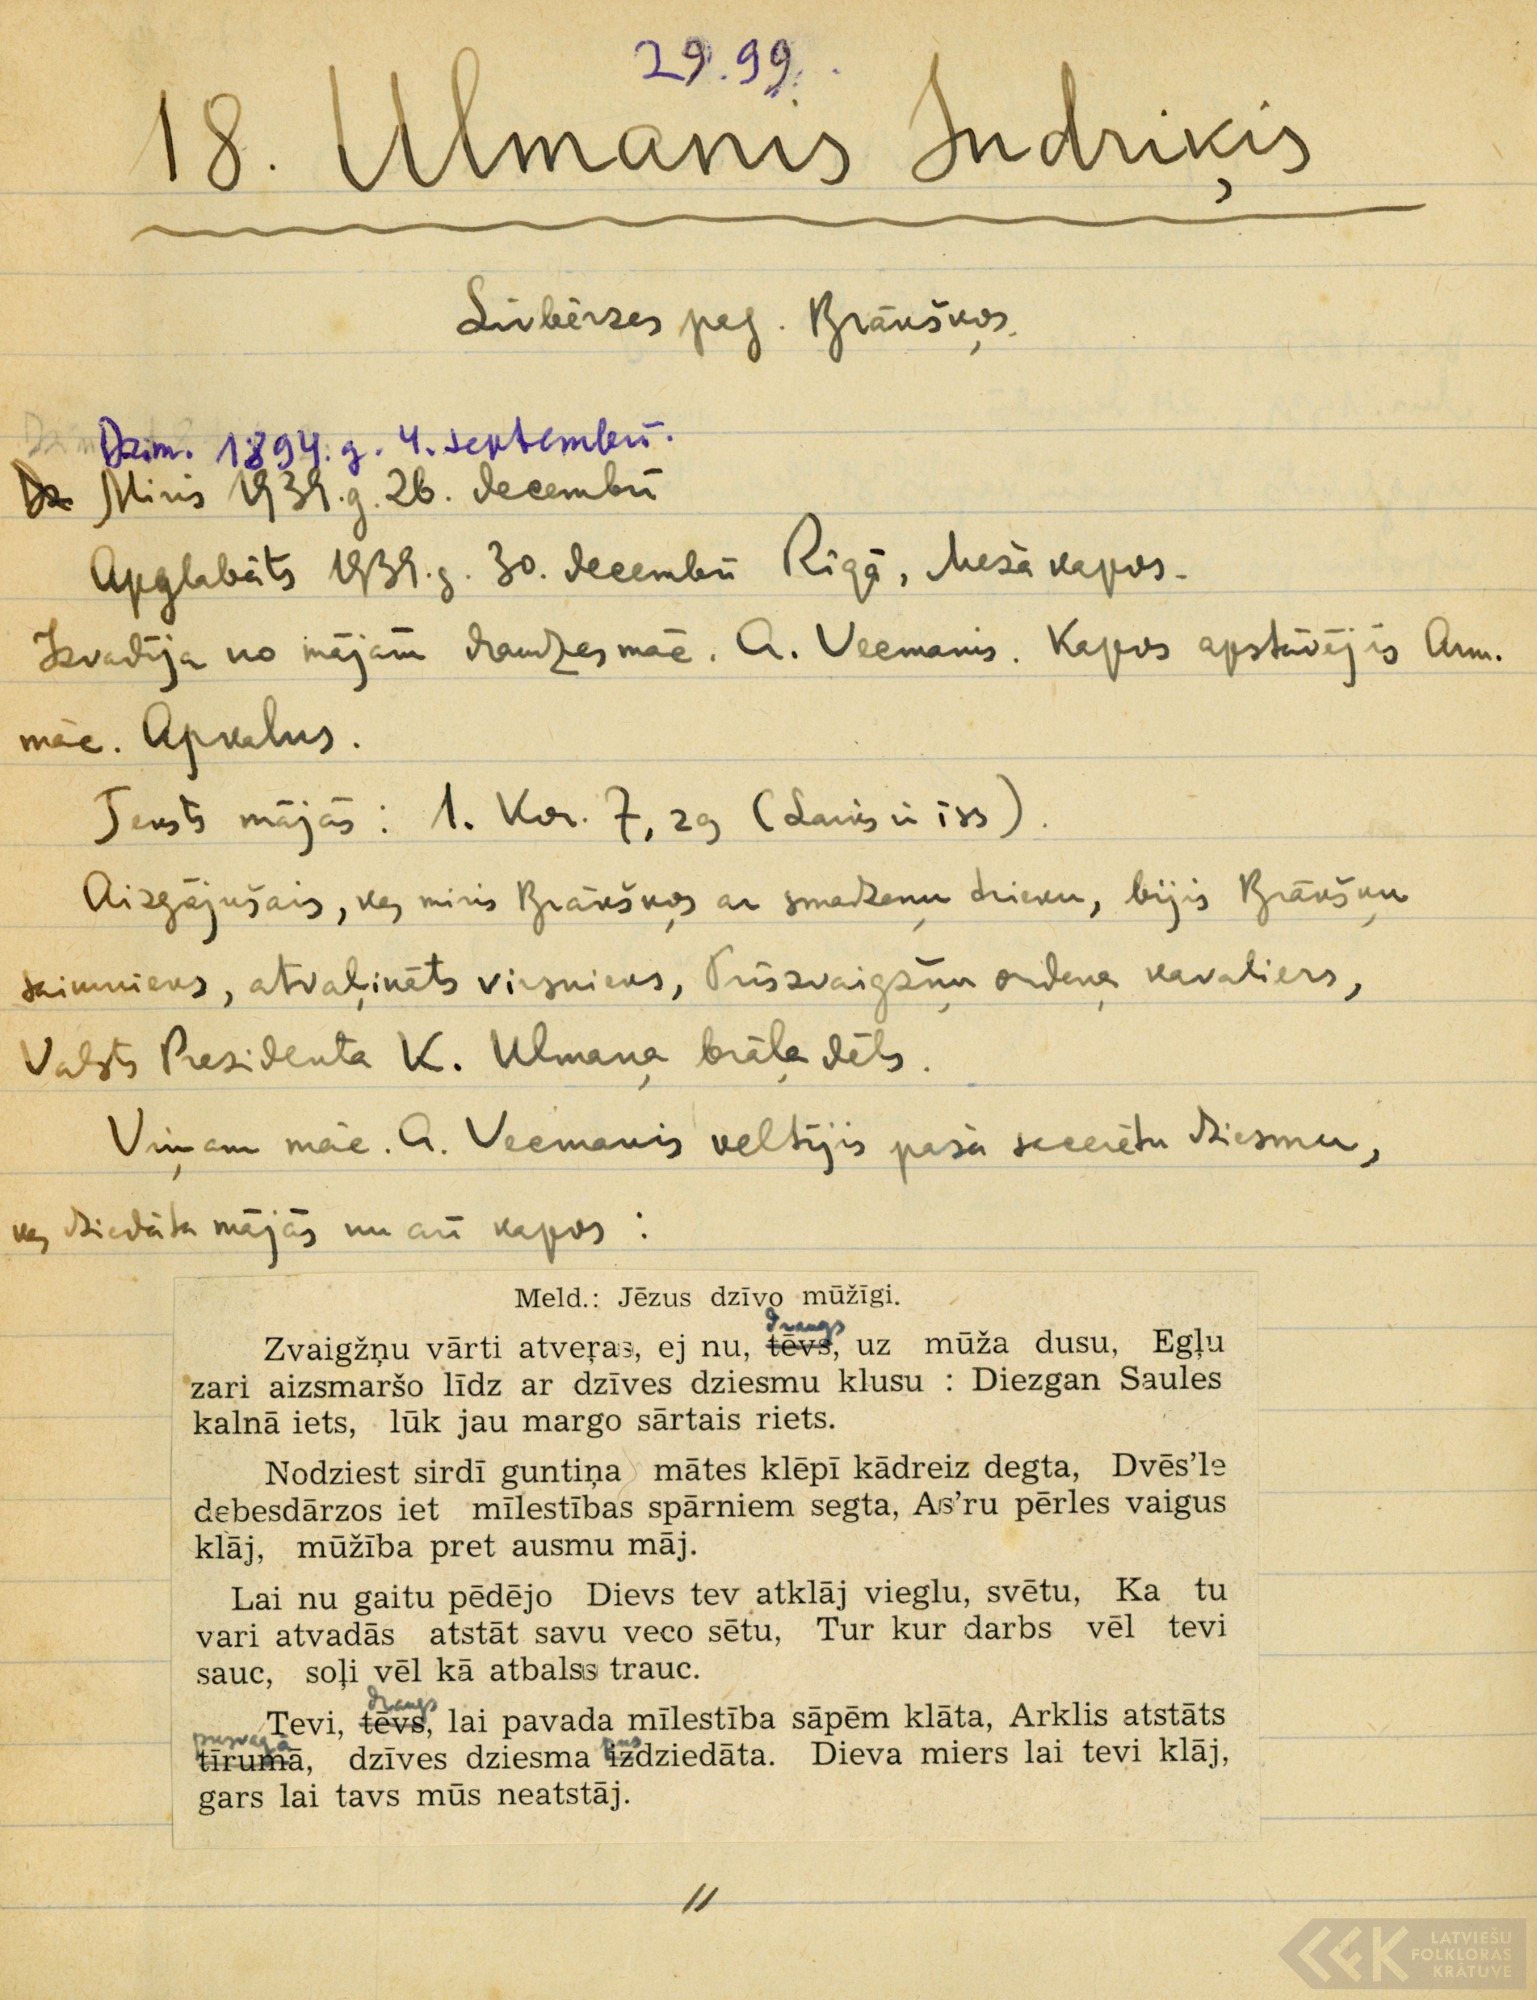 29.99.
18. Ulmanis Indriķis
Līvbērzes pag. Brākšķos.
Dzim. 1894. g. 4. septembrī.
Dz Miris 1939. g. 26. decembrī
Apglabāts 1939. g. 30. decembrī Rīgā, Meža kapos.
Izvadīja no mājām draudzes māc. A. Vecmanis. Kapos apstāvējis Arm.
māc. Apkalns.
Teksts mājās: 1. Kor. 7, 29 (Laiks ir īss).
Aizgājušais, kas miris Brākšķos ar smadzeņu trieku, bijis Brākšķu
saimnieks, atvaļināts virsnieks, Trīszvaigžņu ordeņa kavaliers,
Valsts Prezidenta K. Ulmaņa brāļa dēls.
Viņam māc. A. Vecmanis veltījis paša sacerētu dziesmu,
kas dziedāta mājās un arī kapos:
Meld.: Jēzus dzīvo mūžīgi.
draugs
Zvaigžņu vārti atveŗas, ej nu, tēvs, uz mūža dusu, Egļu
zari aizsmaršo līdz ar dzīves dziesmu klusu : Diezgan Saules
kalnā iets, lūk jau margo sārtais riets.
Nodziest sirdī guntiņa mātes klēpī kādreiz degta, Dvēs'le
debesdārzos iet mīlestības spārniem segta, As'ru pērles vaigus
klāj, mūžība pret ausmu māj.
Lai nu gaitu pēdējo Dievs tev atklāj vieglu, svētu, Ka tu
vari atvadās atstāt savu veco sētu, Tur kur darbs vēl tevi
sauc, soļi vēl kā atbalss trauc.
draugs
Tevi, tēvs, lai pavada mīlestība sāpēm klāta, Arklis atstāts
pusvagā pus
tīrumā, dzīves dziesma izdziedāta. Dieva miers lai tevi klāj,
gars lai tavs mūs neatstāj.
LATVIEŠU
FOLKLORAS
KRĀTUVE